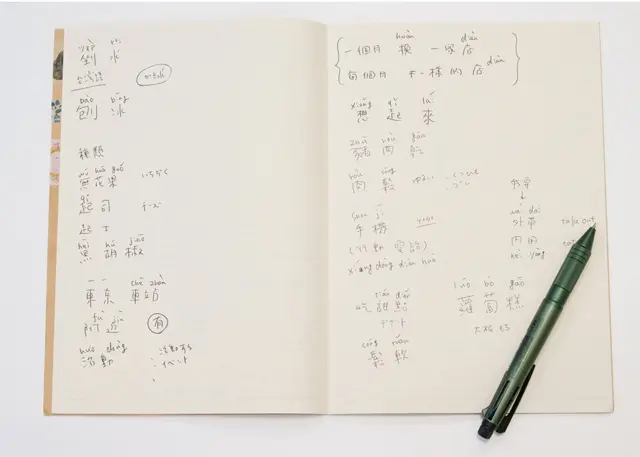 水
bào bīng
刨 冰
種類
wú huā guǒ いちぢく
無花果
起司 チーズ
起士
hēi hú jiāo
黑 胡 椒
chē zhàn
東 东 車站
fù jìn
附 近 有
huó dòng
活 動 活動する
イベント
huàn diàn
一個月 換 一家店
每個月 不一樣的店 diàn
xiǎng qǐ lái
想 起 來
zhū ròu gān
豬 肉 乾
ròu sōng
肉 鬆
shǒu jī
手 機
(行動電話)
xíng dòng diàn huà
我要
↓
wài dài
外帶 take out
內用
nèi yòng
tián diǎn
吃 甜點
デザート
luó bo gāo
蘿 蔔 糕
大根もち
sōng ruǎn
鬆 軟